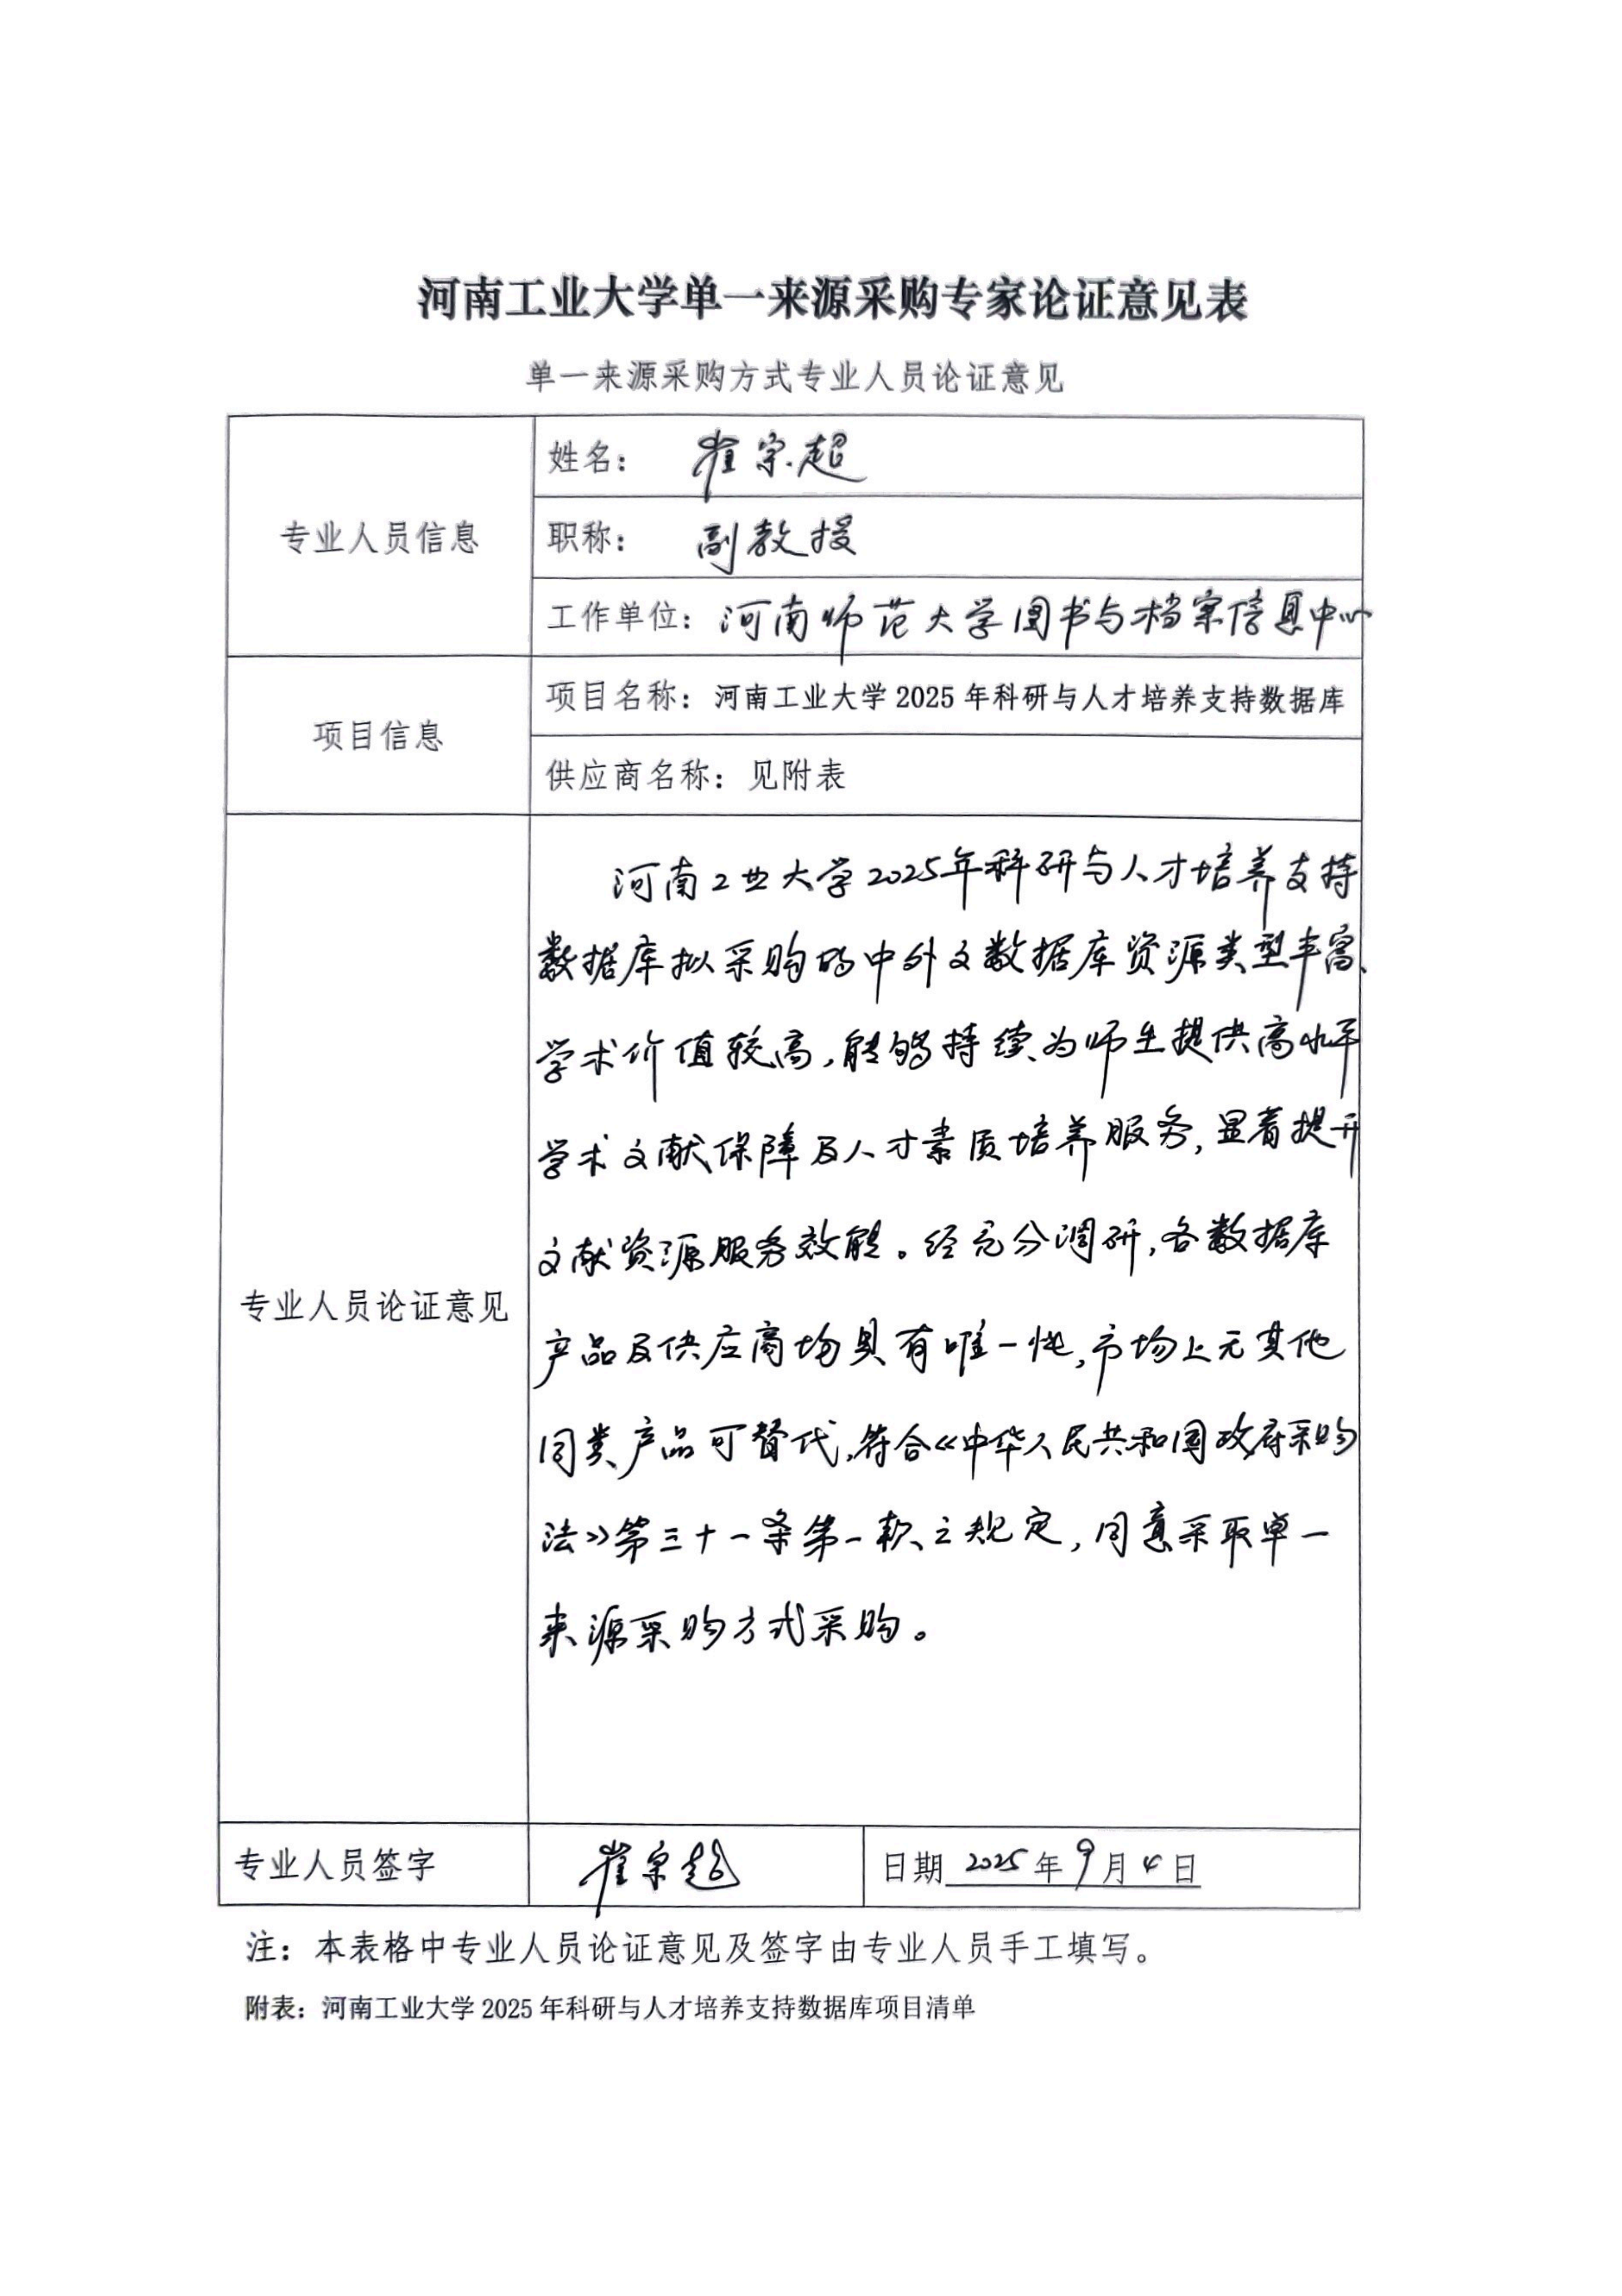 河南工业大学单一来源采购专家论证意见表
单一来源采购方式专业人员论证意见
专业人员信息
姓名： 崔宗超
职称： 副教授
工作单位：河南师范大学图书与档案信息中心
项目信息
项目名称：河南工业大学 2025 年科研与人才培养支持数据库
供应商名称：见附表
专业人员论证意见
河南工业大学2025年科研与人才培养支持
数据库拟采购的中外文数据库资源类型丰富、
学术价值较高，能够持续为师生提供高水平
学术文献保障及人才素质培养服务，显著提升
文献资源服务效能。经充分调研，各数据库
产品及供应商均具有唯一性，市场上无其他
同类产品可替代，符合《中华人民共和国政府采购
法》第三十一条第一款之规定，同意采取单一
来源采购方式采购。
专业人员签字
崔宗超
日期 2025 年 9 月 4 日
注：本表格中专业人员论证意见及签字由专业人员手工填写。
附表：河南工业大学 2025 年科研与人才培养支持数据库项目清单